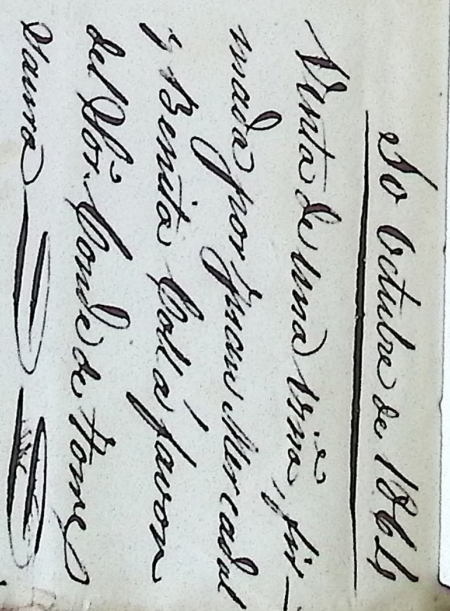 10 Octubre de 1864
Venta de una Viña, fir-
mada por Juan Mercadal
y Benita Coll á favor
del Sor. Conde de Torre
Saura